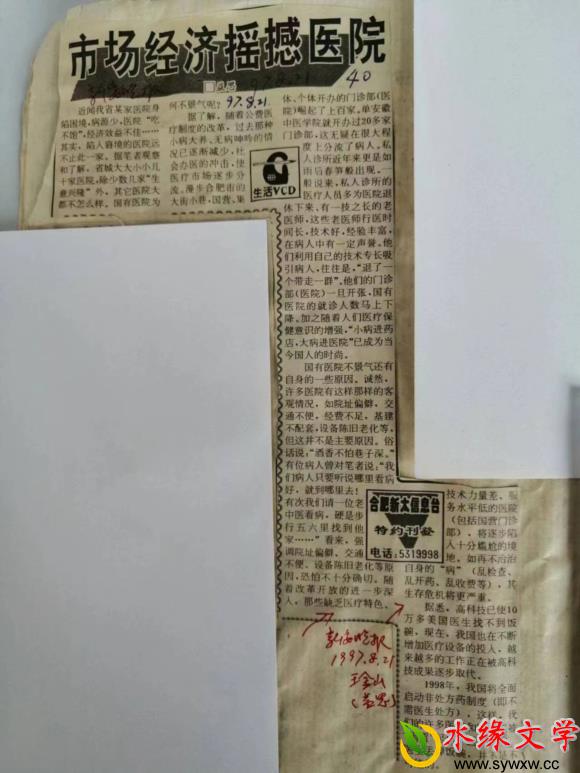 市场经济摇撼医院
97.8.21
40
近闻我省某家医院身
陷困境,病源少,医院“吃
不饱”,经济效益不佳……
其实,陷入窘境的医院远
不止此一家。据笔者观察
和了解,省城大大小小几
十家医院,除少数几家“生
意兴隆”外,其它医院大
都不怎么样。国有医院为
何不景气呢?
97.8.21.
据了解,随着公费医
疗制度的改革,过去那种
小病大养、无病呻吟的情
况已逐渐减少,社
会办医的冲击,使
医疗市场逐步分
流。漫步合肥市的
大街小巷,国营、集
生活VCD
体、个体开办的门诊部(医
院)崛起了上百家,单安徽
中医学院就开办过20多家
门诊部,这无疑在很大程
度上分流了病人。私
人诊所近年来更是如
雨后春笋般出现。一
般说来,私人诊所的
医疗人员多为医院退
休下来,有一技之长的老
医师,这些老医师行医时
间长,技术好,经验丰富,
在病人中有一定声誉。他
们利用自己的技术专长吸
引病人,往往是,“退了一
个带走一群”。他们的门诊
部(医院)一旦开张,国有
医院的就诊人数马上下
降。加之随着人们医疗保
健意识的增强,“小病进药
店,大病进医院”已成为当
今国人的时尚。
国有医院不景气还有
自身的一些原因。诚然,
许多医院有这样那样的客
观情况,如院址偏僻、交
通不便,经费不足,基建
不配套,设备陈旧老化等,
但这并不是主要原因。俗
话说:“酒香不怕巷子深。”
有位病人曾对笔者说:“我
们病人只要听说哪里看病
好,就到哪里去!
有次我们请一位老
中医看病,硬是步
行五六里找到他
家……”看来,强
调院址偏僻、交通
不便、设备陈旧老化等原
因,恐怕不十分确切。随
着改革开放的进一步深
入,那些缺乏医疗特色、
合肥新大信息台
特约刊登
电话:5319998
技术力量差、服
务水平低的医院
(包括国营门诊
部),将逐步陷
入十分尴尬的境
地,如再不治治
自身的“病”(乱检查、
乱开药、乱收费等),其
生存危机将更严重。
据悉,高科技已使10
万多美国医生找不到饭
碗,现在,我国也在不断
增加医疗设备的投人,越
来越多的工作正在被高科
技成果逐步取代。
1998年,我国将全面
启动非处方药制度(即不
需医生处方),这样,我
们的许多医
新安晚报
1997.8.21
王金山
水缘文学
www.sywxw.cc